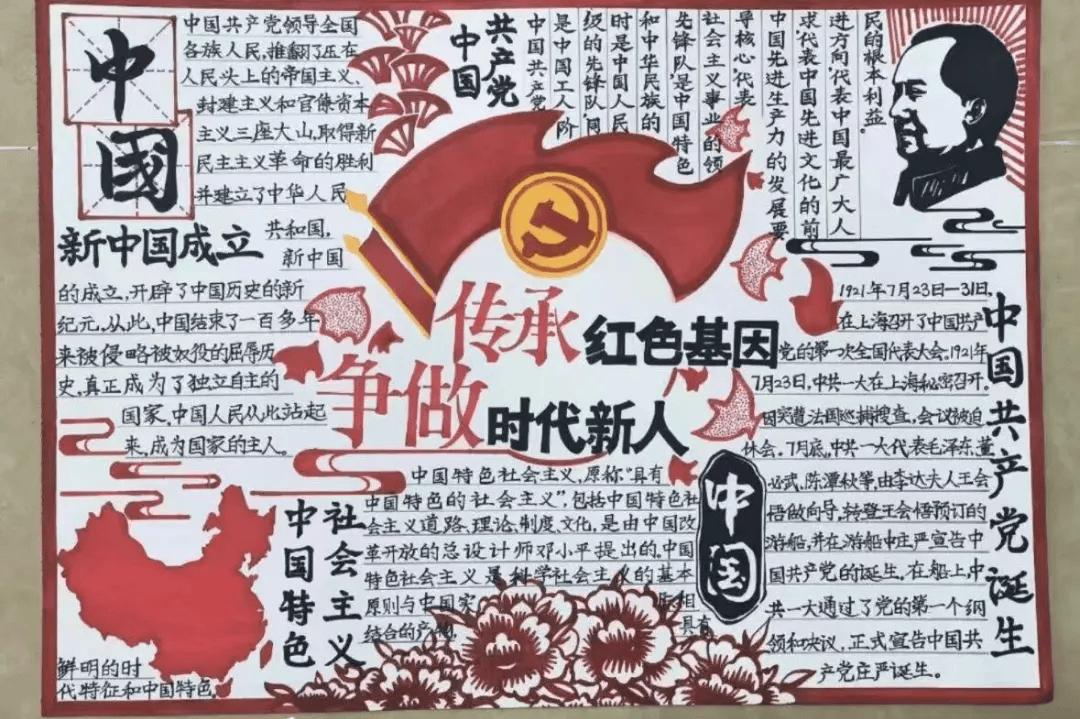 中
國
中国共产党领导全国
各族人民,推翻了压在
人民头上的帝国主义、
封建主义和官僚资本
主义三座大山,取得新
民主主义革命的胜利
并建立了中华人民
共和国,
新中国成立
新中国
的成立,开辟了中国历史的新
纪元,从此,中国结束了一百多年
来被侵略被奴役的屈辱历
史,真正成为了独立自主的
国家,中国人民从此站起
来,成为国家的主人。
共产党
中国
中国共产党
是中国工人阶
级的先锋队,同
时是中国人民
和中华民族的
先锋队,是中国特色
社会主义事业的领
导核心,代表
中国先进生产力的发展要
求,代表中国先进文化的前
进方向,代表中国最广大人
民的根本利益。
传承红色基因
争做时代新人
1921年7月23日—31日,
在上海召开了中国共产
党的第一次全国代表大会。1921年
7月23日,中共一大在上海秘密召开。
因突遭法国巡捕搜查,会议被迫
休会。7月底,中共一大代表毛泽东、董
必武、陈潭秋等,由李达夫人王会
悟做向导,转登王会悟预订的
游船,并在游船中庄严宣告中
国共产党的诞生,在船上中
共一大通过了党的第一个纲
领和决议,正式宣告中国共
产党庄严诞生。
中国共产党诞生
中国
社会主义
中国特色
中国特色社会主义,原称"具有
中国特色的社会主义",包括中国特色社
会主义道路、理论、制度、文化,是由中国改
革开放的总设计师邓小平提出的,中国
特色社会主义是科学社会主义的基本
原则与中国实 相
结合的产物, 具有
鲜明的时
代特征和中国特色。